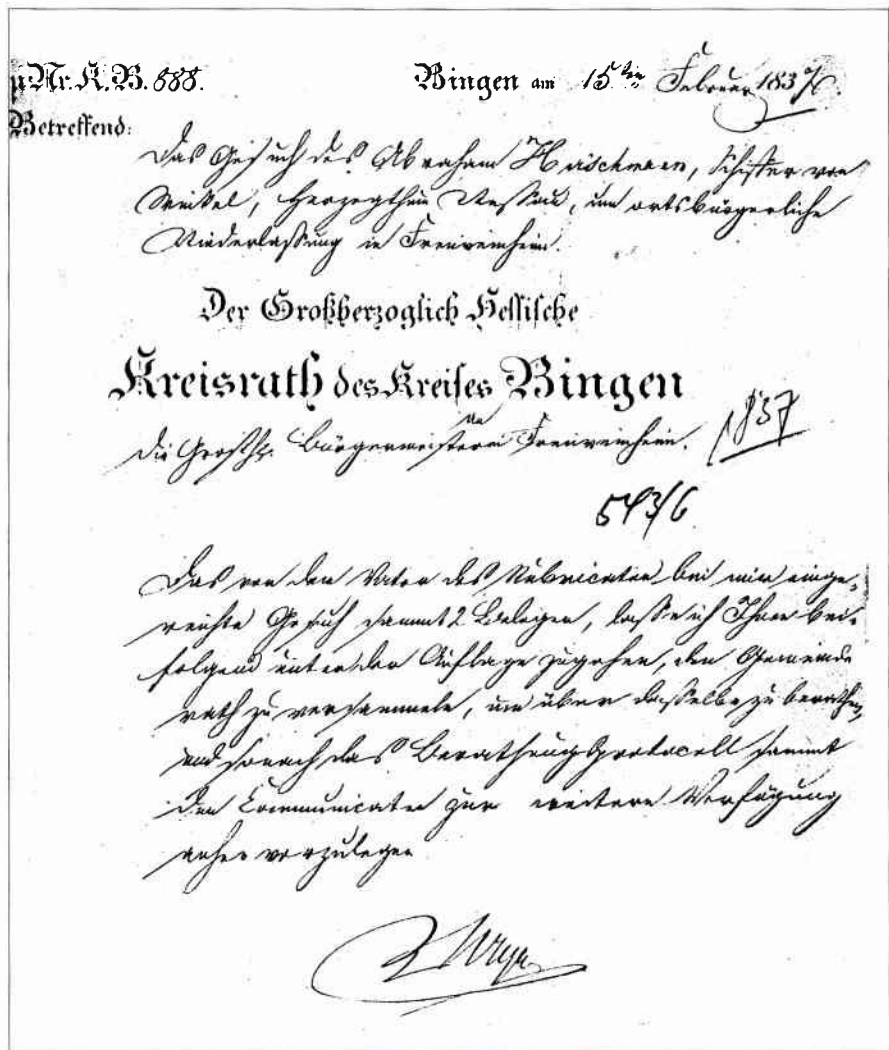 Nr. K. B. 888. Bingen am 15ten Februar 1837.
Betreffend:
Das Gesuch des Abraham Haischmann, Schiffer von
Winkel, Herzogthum Nassau, um ortsbürgerliche
Niederlassung in Freiweinheim.
Der Großherzoglich Hessische
Kreisrath des Kreises Bingen
an
die Großhz. Bürgermeisterei Freiweinheim.
1837
543/6
Das von dem Vater des Rubricaten bei mir einge-
reichte Gesuch sammt 2 Belegen, lasse ich Ihnen bei-
folgend unter der Auflage zugehen, den Gemeinde
rath zu versammeln, um über dasselbe zu berathen,
und sonach das Berathungsprotocoll sammt
den Communicaten zur weiteren Verfügung
anher vorzulegen